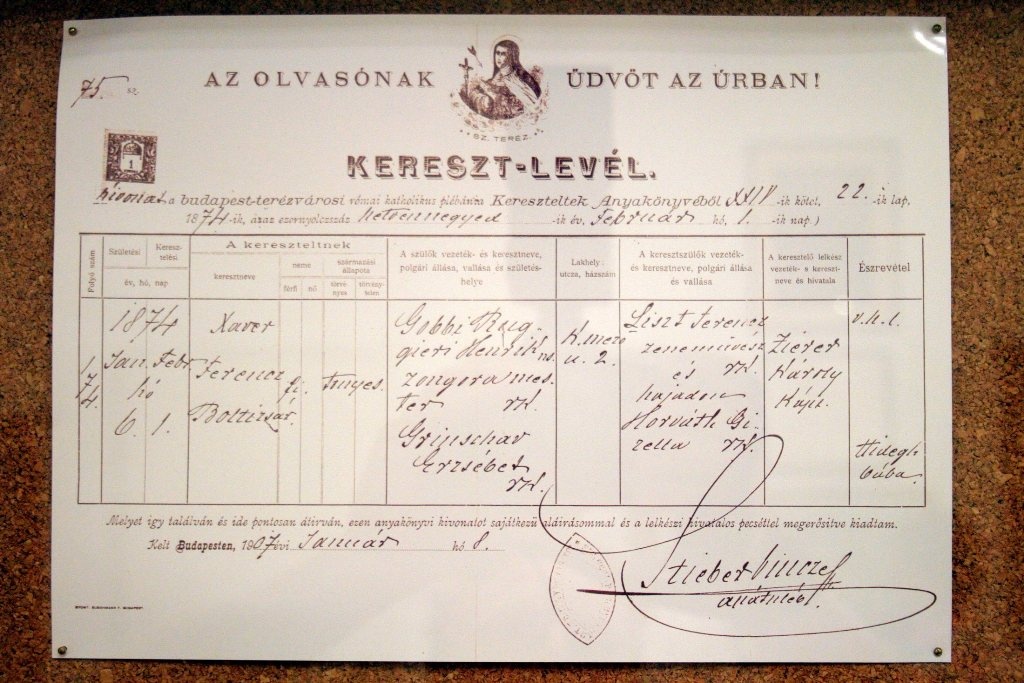 AZ OLVASÓNAK ÜDVÖT AZ ÚRBAN!
75. sz.
SZ. TERÉZ.
1
KERESZT-LEVÉL.
kivonat a budapest-terézvárosi római katholikus plébánia Kereszteltek Anyakönyvéből XXIV-ik kötet, 22.-ik lap.
1874-ik, azaz ezernyolczszáz hetvennegyed -ik év. Február hó, 1. -ik nap.)
Folyó szám
Születési
Keresztelési
év, hó, nap
A kereszteltnek
keresztneve
neme
férfi
nő
származási állapota
törvényes
törvénytelen
A szülők vezeték- és keresztneve,
polgári állása, vallása és születés-
helye
Lakhely:
utcza, házszám
A keresztszülők vezeték-
és keresztneve, polgári állása
és vallása
A keresztelő lelkész
vezeték- s kereszt-
neve és hivatala
Észrevétel
174
1874
Jan. Febr.
hó
6. 1.
Xaver
Ferencz
Boltizsár
fi.
tnyes.
Gobbi Rug-
gieri Henrik ns.
zongora mes-
ter rk.
Grinschar
Erzsébet
rk.
K. mező
u. 2.
Liszt Ferencz
zeneművész
és rk.
hajadon
Horváth Gi-
zella rk.
Zierer
Károly
Kápl.
v.h.l.
Hidegh
bába.
Melyet igy találván és ide pontosan átirván, ezen anyakönyvi kivonatot sajátkezű aláirásommal és a lelkészi hivatalos pecséttel megerősitve kiadtam.
Kelt Budapesten, 1907 évi Január hó 8.
Stieber Vincze